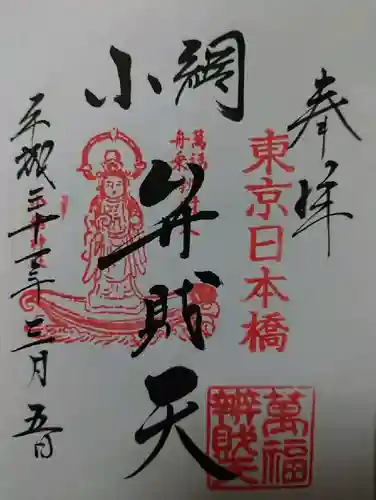 奉拝
東京日本橋
小網
弁財天
萬福
舟乗
平成三十一年三月五日
萬福
辨財天